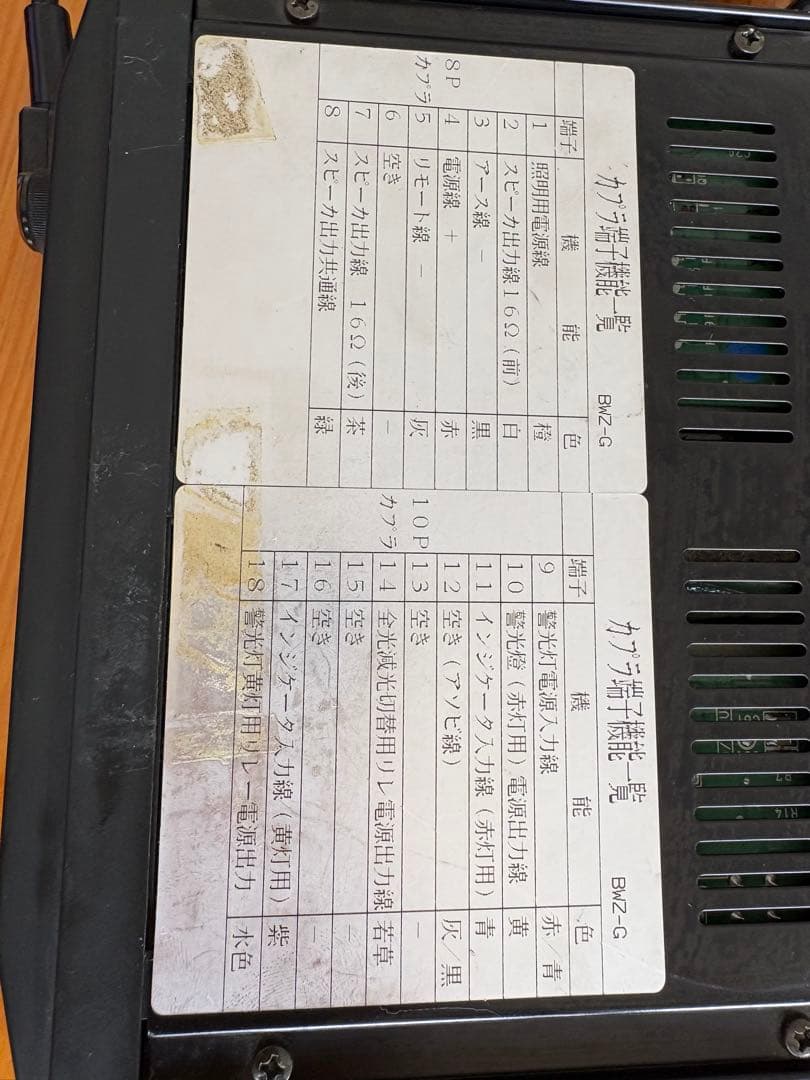 カプラ端子機能一覧 BWZ-G
端子 機能 色
8Pカプラ
1 照明用電源線 橙
2 スピーカ出力線16Ω(前) 白
3 アース線 − 黒
4 電源線 + 赤
5 リモート線 − 灰
6 空き −
7 スピーカ出力線 16Ω(後) 茶
8 スピーカ出力共通線 緑
カプラ端子機能一覧 BWZ-G
端子 機能 色
10Pカプラ
9 警光灯電源入力線 赤/青
10 警光燈(赤灯用)電源出力線 黄
11 インジケータ入力線(赤灯用) 青
12 空き(アソビ線) 灰/黒
13 空き −
14 全光減光切替用リレ電源出力線 若草
15 空き −
16 空き −
17 インジケータ入力線(黄灯用) 紫
18 警光灯黄灯用リレー電源出力 水色
R14